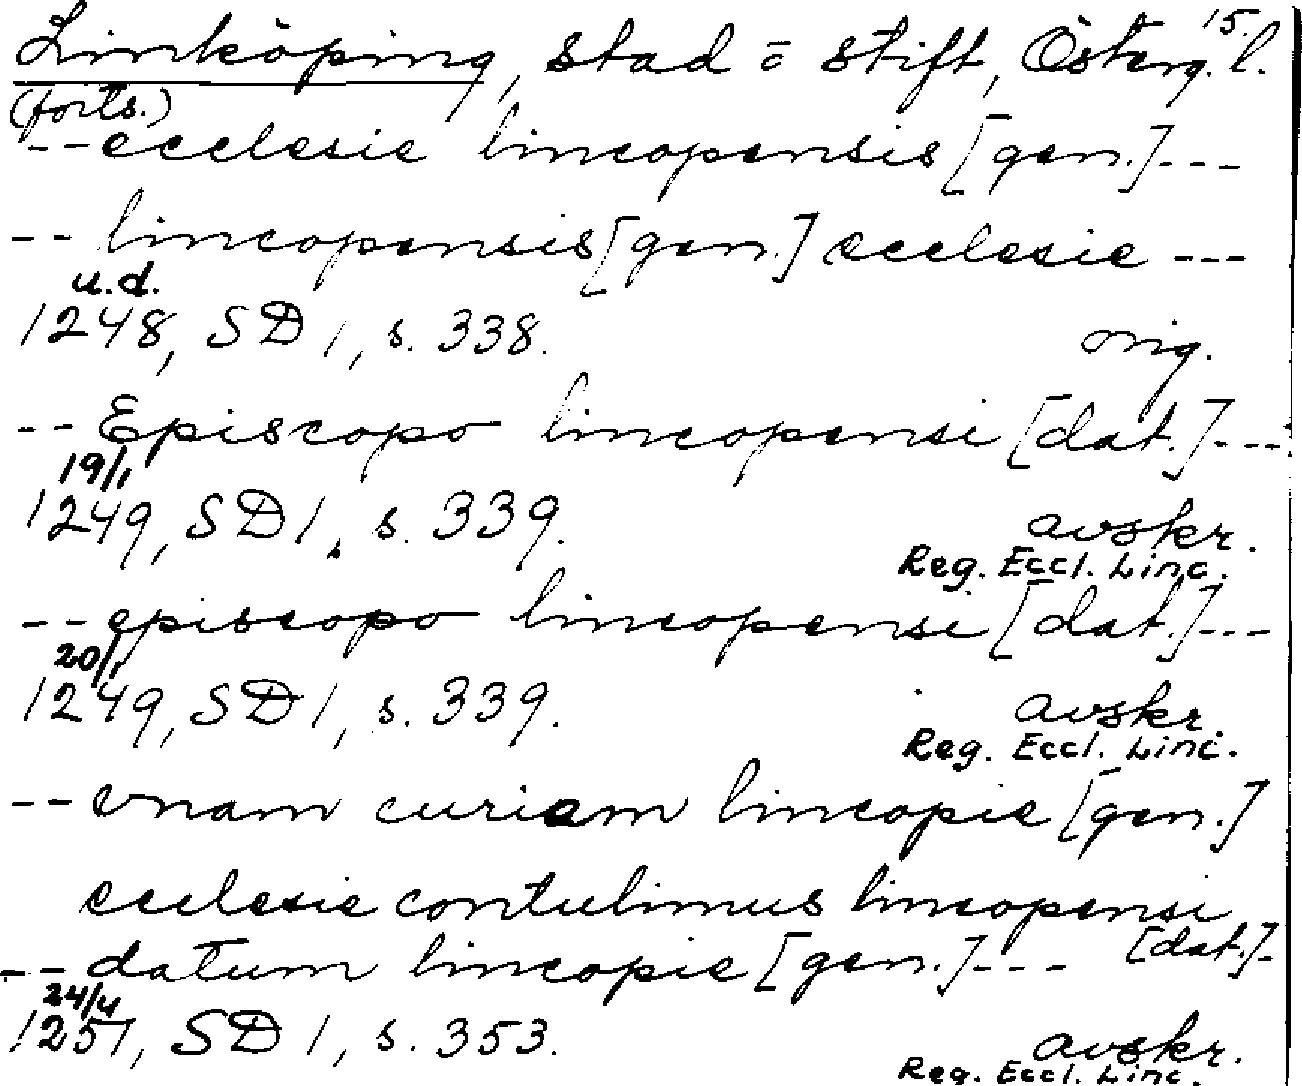 15.
Linköping, stad o stift, Österg. l.
(forts.)
-- ecclesie lincopensis [gen.] ---
-- lincopensis [gen.] ecclesie ---
u.d.
1248, SD 1, s. 338. orig.
-- Episcopo lincopensi [dat.] ---
19/1
1249, SD 1, s. 339. avskr.
Reg. Eccl. Linc.
-- episcopo lincopensi [dat.] ---
20/1
1249, SD 1, s. 339. avskr.
Reg. Eccl. Linc.
-- vnam curiam lincopie [gen.]
ecclesie contulimus lincopensi
[dat.] -
-- datum lincopie [gen.] ---
24/4
1251, SD 1, s. 353. avskr.
Reg. Eccl. Linc.